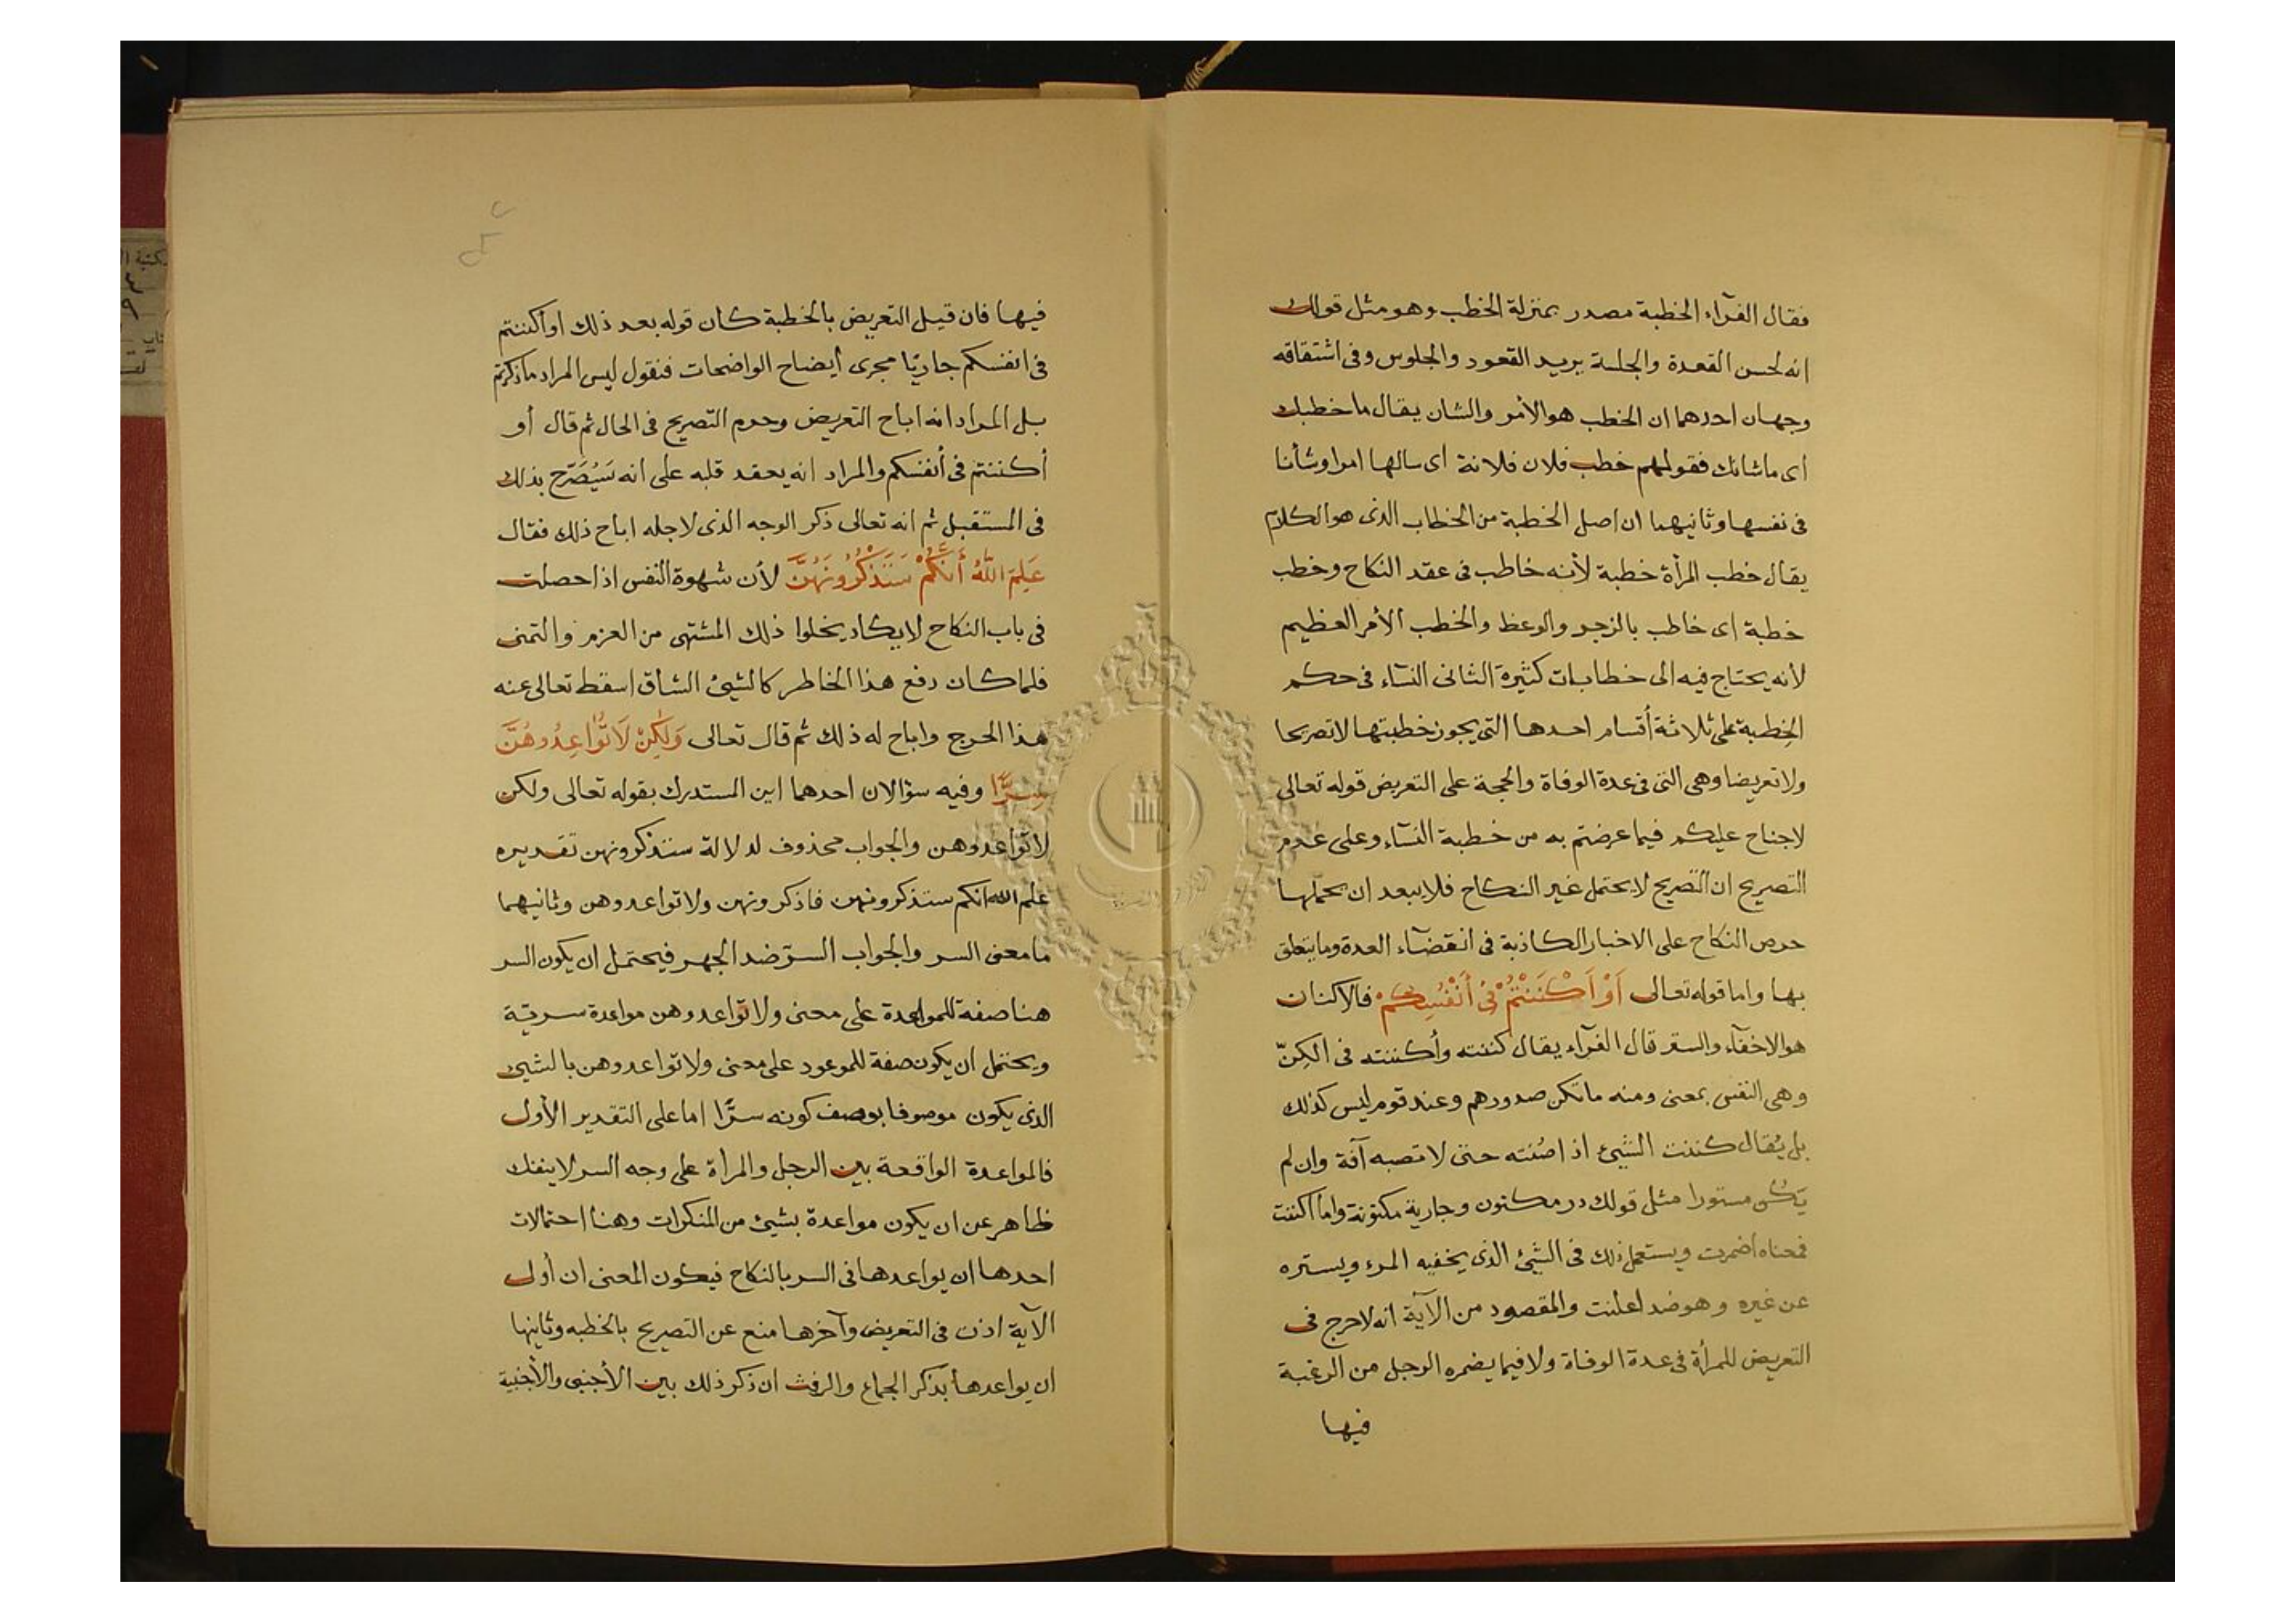 فقال الفرآء الخطبة مصدر بمنزلة الخطب وهو مثل قولك
انه لحسن القعدة والجلسة يريد القعود والجلوس وفى اشتقاقه
وجهان احدهما ان الخطب هو الأمر والشان يقال ما خطبك
اى ماشانك فقولهم خطب فلان فلانة اى سالها امرا وشأنا
فى نفسها وثانيهما ان اصل الخطبة من الخطاب الذى هو الكلام
يقال خطب المرأة خطبة لأنه خاطب فى عقد النكاح وخطب
خطبة اى خاطب بالزجر والوعظ والخطب الأمر العظيم
لأنه يحتاج فيه الى خطابات كثيرة الثانى النسآء فى حكم
الخِطبة على ثلاثة أقسام احدها التى يجوز خطبتها لاتصريحا
ولاتعريضا وهى التى فى عدة الوفاة والحجة على التعريض قوله تعالى
لاجناح عليكم فيما عرضتم به من خطبة النسآء وعلى عدم
التصريح ان التصريح لايحتمل غير النكاح فلايبعد ان يحملها
حرص النكاح على الاخبار الكاذبة فى انقضآء العدة ومايتعلق
بها واما قوله تعالى أَوْ أَكْنَنْتُمْ فِى أَنْفُسِكُمْ فالاكنان
هو الاخفآء والستر قال الفرآء يقال كننته وأكننته فى الكِنّ
وهى النفس بمعنى ومنه ماتكن صدورهم وعند قوم ليس كذلك
بل يُقال كننت الشيئ اذا صُنته حتى لاتصبه آفة وان لم
يكن مستورا مثل قولك در مكنون وجارية مكنونة واما اكننت
فمعناه اضمرت ويستعمل ذلك فى الشيئ الذى يخفيه المرء ويستره
عن غيره وهو ضد اعلنت والمقصود من الآية انه لاحرج فى
التعريض للمرأة فى عدة الوفاة ولا فيما يضمره الرجل من الرغبة
فيها
فيها فان قيل التعريض بالخطبة كان قوله بعد ذلك او أكننتم
فى انفسكم جاريًا مجرى أيضاح الواضحات فنقول ليس المراد ماذكرتم
بل المراد انه اباح التعريض وحرم التصريح فى الحال ثم قال أو
أكننتم فى أنفسكم والمراد انه يعقد قلبه على انه سَيُصَرّح بذلك
فى المستقبل ثم انه تعالى ذكر الوجه الذى لاجله اباح ذلك فقال
عَلِمَ اللّهُ أَنَّكُمْ سَتَذْكُرُونَهُنَّ لأن شهوة النفس اذا حصلت
فى باب النكاح لايكاد يخلوا ذلك المشتهى من العزم والتمنى
فلما كان دفع هذا الخاطر كالشيئ الشاق اسقط تعالى عنه
هذا الحرج واباح له ذلك ثم قال تعالى وَلَكِنْ لَاتُوَاعِدُوهُنَّ
سِرًّا وفيه سؤالان احدهما اين المستدرك بقوله تعالى ولكن
لاتواعدوهن والجواب محذوف لدلالة ستذكرونهن تقديره
علم الله انكم ستذكرونهن فاذكرونهن ولاتواعدوهن وثانيهما
مامعنى السر والجواب السرّ ضد الجهر فيحتمل ان يكون السر
هنا صفة للمواعدة على معنى ولاتواعدوهن مواعدة سريّة
ويحتمل ان يكون صفة للموعود على معنى ولاتواعدوهن بالشيئ
الذى يكون موصوفا بوصف كونه سرًّا اما على التقدير الأول
فالمواعدة الواقعة بين الرجل والمرأة على وجه السر لاينفك
ظاهر عن ان يكون مواعدة بشيئ من المنكرات وهنا احتمالات
احدها ان يواعدها فى السر بالنكاح فيكون المعنى ان أول
الآية اذن فى التعريض وآخرها منع عن التصريح بالخطبه وثانيها
ان يواعدها بذكر الجماع والرفث ان ذكر ذلك بين الأجنبى والأجنبية